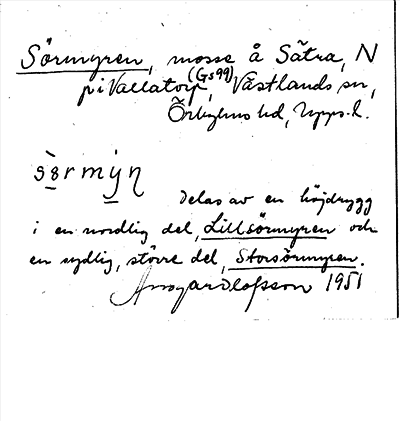 Sörmyren, mosse å Sätra, N
på Vallatorp, (Gs 99) Västlands sn,
Örbyhus hd, Upps. l.
sö̀rmýn
Delas av en höjdrygg
i en nordlig del, Lillsörmyren och
en sydlig, större del, Storsörmyren.
Ansgar Olofsson 1951